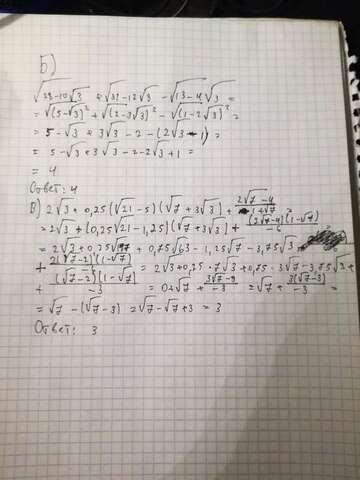 Б)
√(28-10√3) + √(31-12√3) - √(13-4√3) =
= √(5-√3)² + √(2-3√3)² - √(1-2√3)² =
= 5 - √3 + 3√3 - 2 - (2√3 - 1) =
= 5 - √3 + 3√3 - 2 - 2√3 + 1 =
= 4
Ответ: 4
В) 2√3 + 0,25(√21 - 5)(√7 + 3√3) + (2√7-4)/(1+√7) =
= 2√3 + (0,25√21 - 1,25)(√7 + 3√3) + (2√7-4)(1-√7)/-6
= 2√3 + 0,25√147 + 0,75√63 - 1,25√7 - 3,75√3
+ 2(√7-2)(1-√7)/-6 = 2√3 + 0,25 · 7√3 + 0,75 · 3√7 - 3,75√3 +
+ (√7-2)(1-√7)/-3 = 0 + √7 + (3√7-9)/-3 = √7 + 3(√7-3)/-3 =
= √7 - (√7 - 3) = √7 - √7 + 3 = 3
Ответ: 3